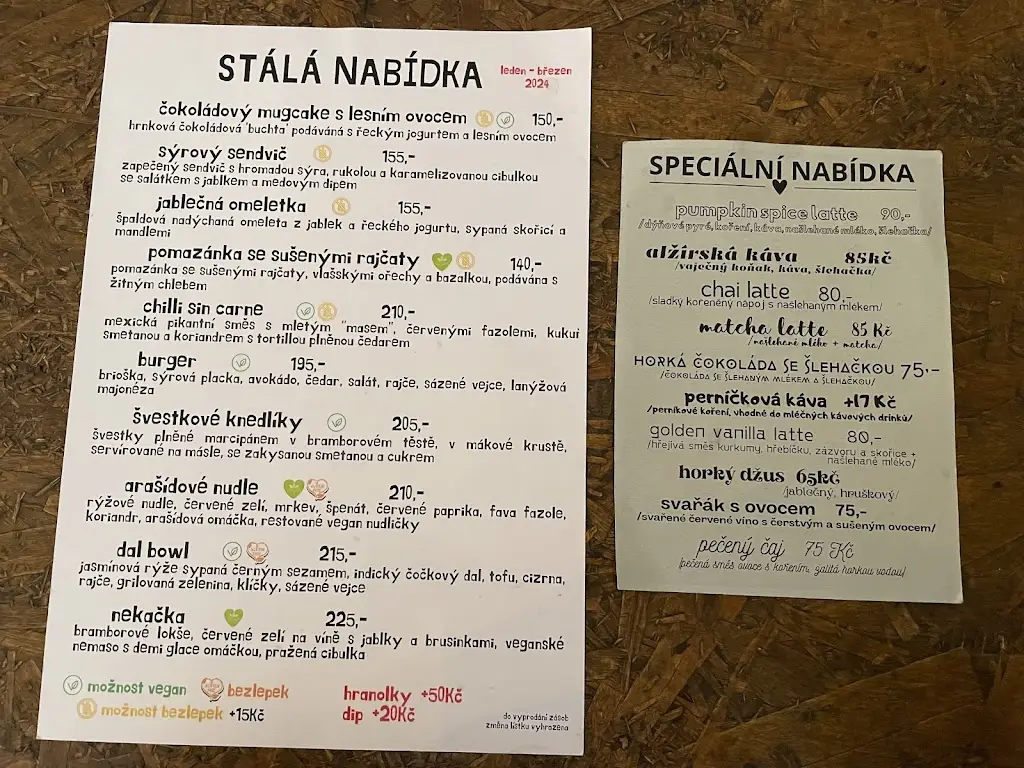 STÁLÁ NABÍDKA
leden - březen
2024
čokoládový mugcake s lesním ovocem 150,-
hrnková čokoládová 'buchta' podáváná s řeckým jogurtem a lesním ovocem
sýrový sendvič 155,-
zapečený sendvič s hromadou sýra, rukolou a karamelizovanou cibulkou
se salátkem s jablkem a medovým dipem
jablečná omeletka 155,-
špaldová nadýchaná omeleta z jablek a řeckého jogurtu, sypaná skořicí a
mandlemi
pomazánka se sušenými rajčaty 140,-
pomazánka se sušenými rajčaty, vlašskými ořechy a bazalkou, podávána s
žitným chlebem
chilli sin carne 210,-
mexická pikantní směs s mletým "masem", červenými fazolemi, kukuř
smetanou a koriandrem s tortillou plněnou čedarem
burger 195,-
brioška, sýrová placka, avokádo, čedar, salát, rajče, sázené vejce, lanýžová
majonéza
švestkové knedlíky 205,-
švestky plněné marcipánem v bramborovém těstě, v mákové krustě,
servírované na másle, se zakysanou smetanou a cukrem
arašídové nudle 210,-
rýžové nudle, červené zelí, mrkev, špenát, červené paprika, fava fazole,
koriandr, arašídová omáčka, restované vegan nudličky
dal bowl 215,-
jasmínová rýže sypaná černým sezamem, indický čočkový dal, tofu, cizrna,
rajče, grilovaná zelenina, klíčky, sázené vejce
nekačka 225,-
bramborové lokše, červené zelí na víně s jablky a brusinkami, veganské
nemaso s demi glace omáčkou, pražená cibulka
možnost vegan bezlepek
možnost bezlepek +15Kč
hranolky +50Kč
dip +20Kč
do vyprodání zásob
změna lístku vyhrazena
SPECIÁLNÍ NABÍDKA
pumpkin spice latte 90,-
/dýňové pyré, koření, káva, našlehané mléko, šlehačka/
alžírská káva 85kč
/vaječný koňak, káva, šlehačka/
chai latte 80,-
/sladký kořeněný nápoj s našlehaným mlékem/
matcha latte 85 Kč
/našlehané mléko + matcha/
HORKÁ ČOKOLÁDA SE ŠLEHAČKOU 75,-
/ČOKOLÁDA SE ŠLEHANÝM MLÉKEM A ŠLEHAČKOU/
perníčková káva +17 Kč
/perníkové koření, vhodné do mléčných kávových drinků/
golden vanilla latte 80,-
/hřejivá směs kurkumy, hřebíčku, zázvoru a skořice +
našlehané mléko/
horký džus 65kč
/jablečný, hruškový/
svařák s ovocem 75,-
/svařené červené víno s čerstvým a sušeným ovocem/
pečený čaj 75 Kč
/pečená směs ovoce s kořením, zalitá horkou vodou/